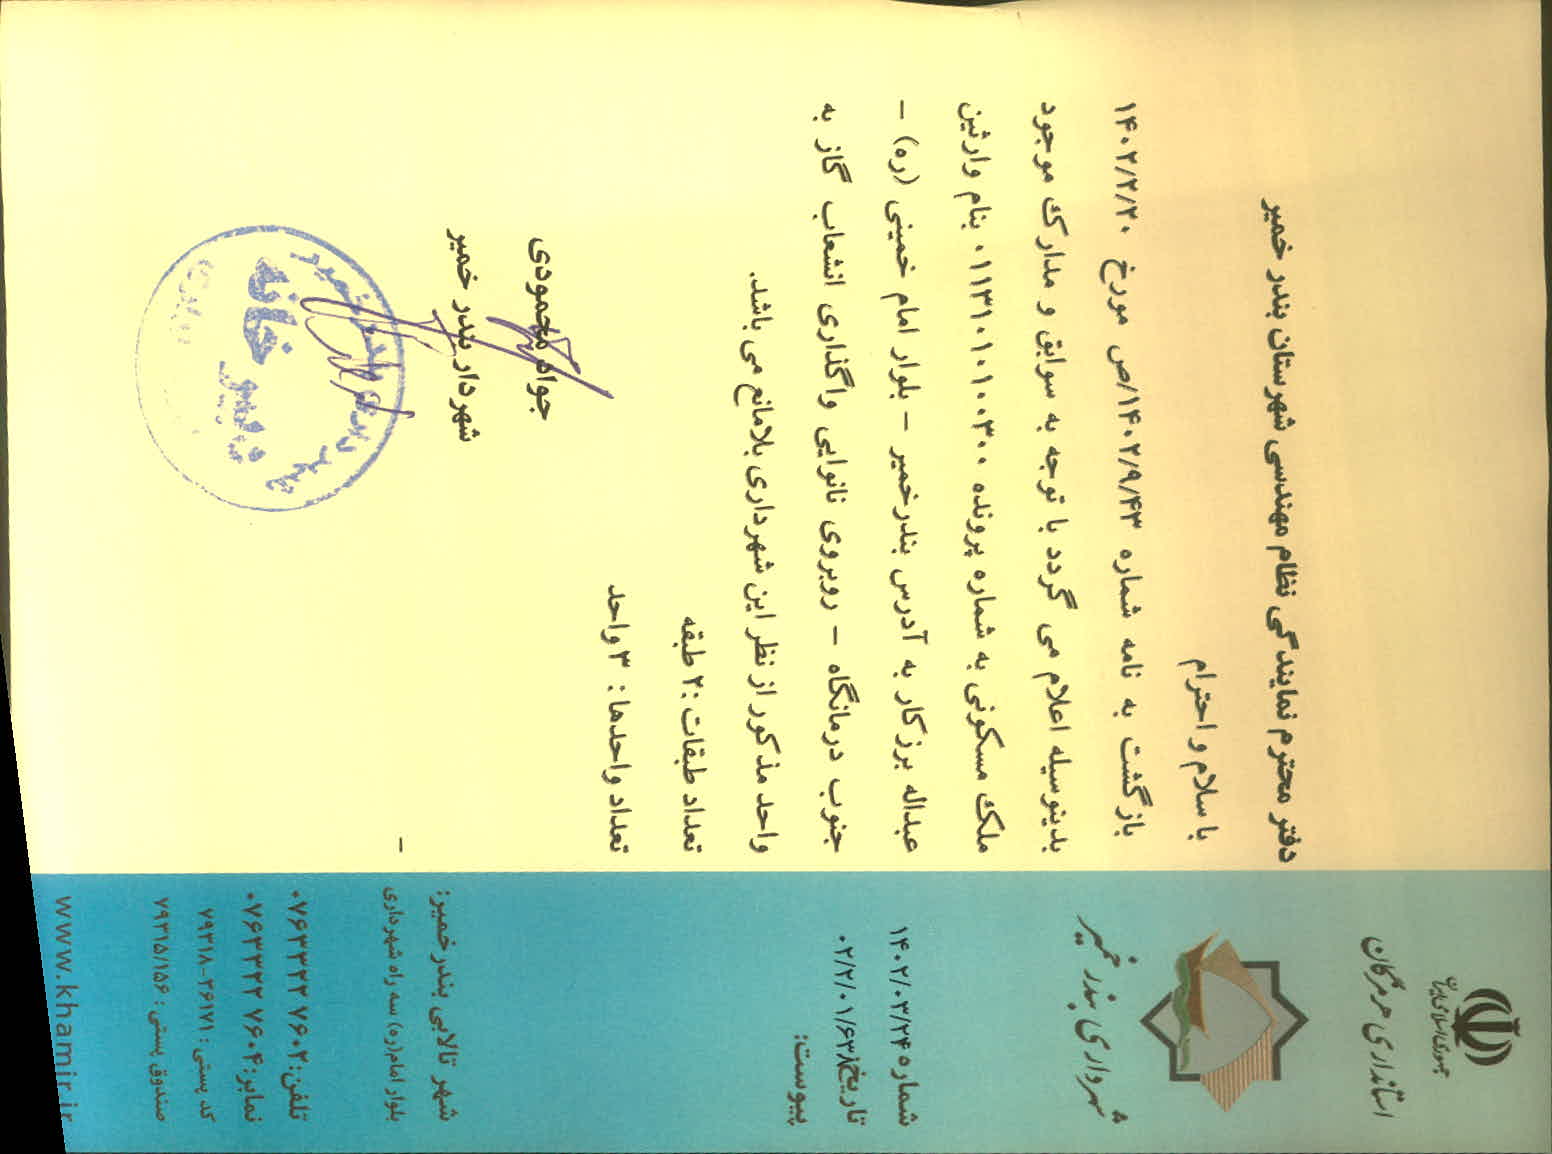 جمهوری اسلامی ایران
استانداری هرمزگان
شهرداری بندر خمیر
شماره ۱۴۰۲/۰۳/۲۴
تاریخ
پیوست:
دفتر محترم نمایندگی نظام مهندسی شهرستان بندر خمیر
با سلام و احترام
بازگشت به نامه شماره ۱۴۰۲/۹/۴۳/ص مورخ ۱۴۰۲/۲/۲۰
بدینوسیله اعلام می گردد با توجه به سوابق و مدارک موجود
ملک مسکونی به شماره پرونده ۰۱۱۳۱۰۱۰۱۰۰۳۰۰ بنام وارثین
عبداله برزکار به آدرس بندرخمیر – بلوار امام خمینی (ره) –
جنوب درمانگاه – روبروی نانوایی واگذاری انشعاب گاز به
واحد مذکور از نظر این شهرداری بلامانع می باشد.
تعداد طبقات :۲ طبقه
تعداد واحدها: ۳ واحد
جواد محمودی
شهردار بندر خمیر
شهرداری بندر خمیر
دبیر خانه
–
شهر تالابی بندر خمیر:
بلوار امام(ره) سه راه شهرداری
تلفن:۰۷۶۳۳۲۲۷۶۰۲
نمابر:۰۷۶۳۳۲۲۷۶۰۴
کد پستی : ۷۹۳۱۸-۲۶۱۷۱
صندوق پستی : ۷۹۳۱۵/۱۵۶
www.khamir.ir